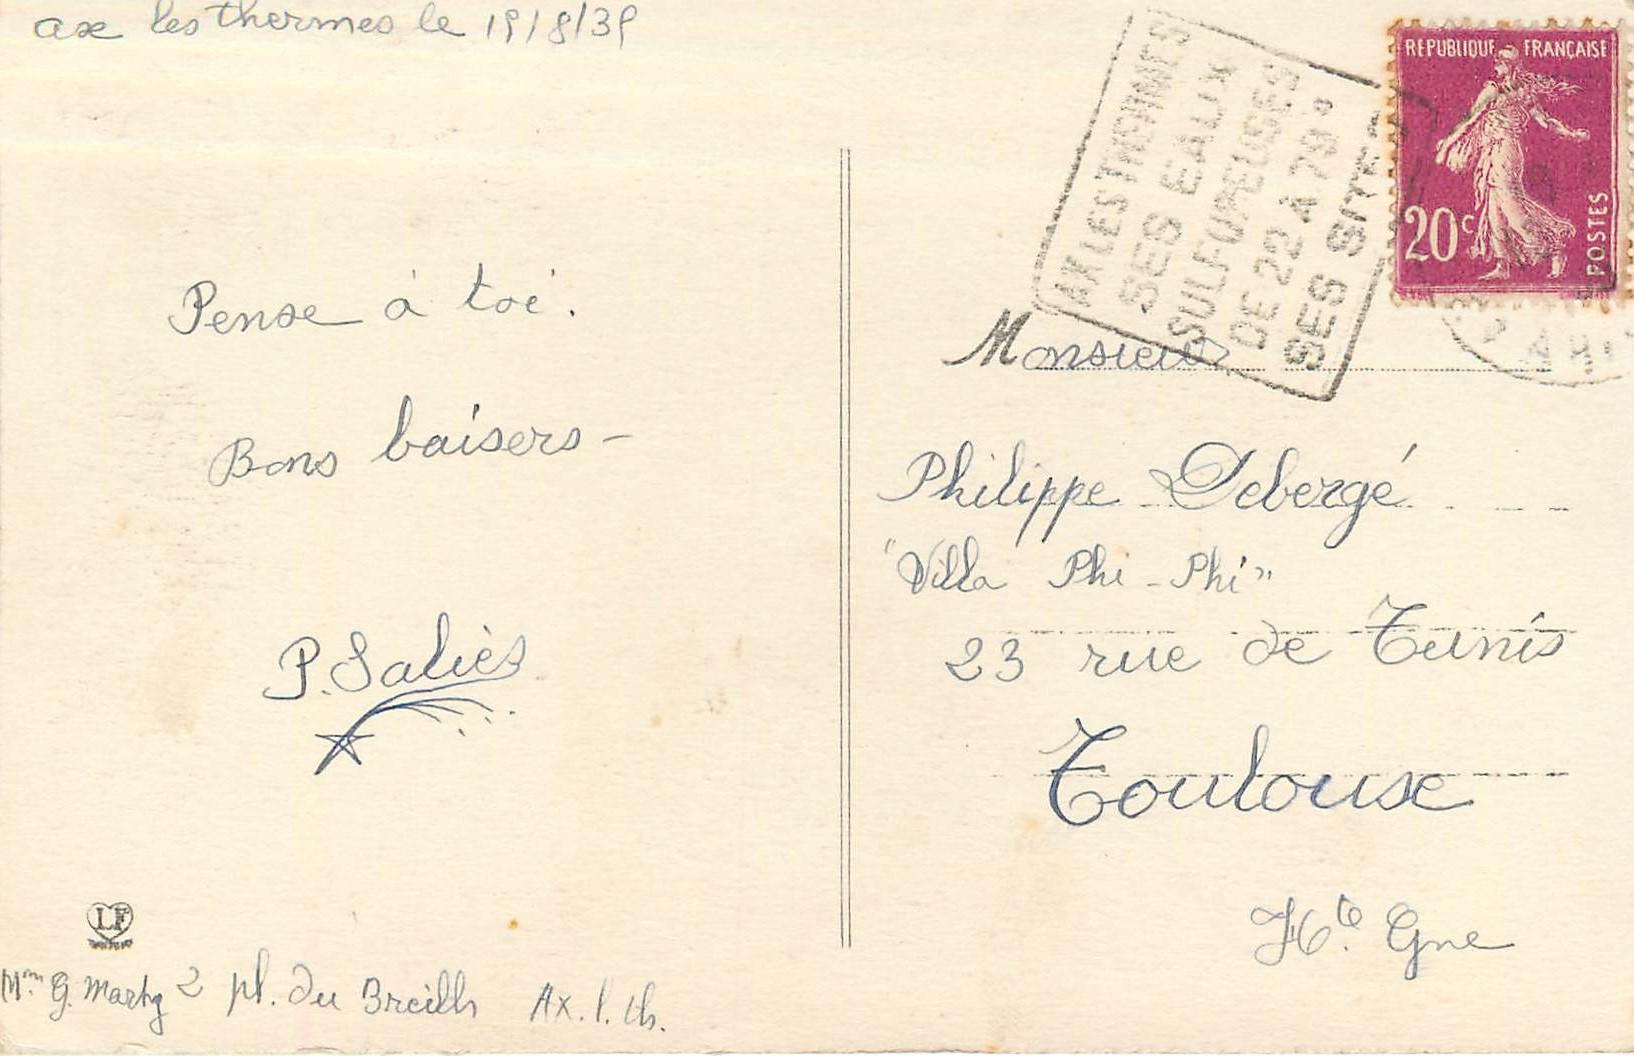 axe les thermes le 19/8/39
Pense à toi.
Bons baisers -
P. Saliès
LF
Mm G. Marty 2 pl. du Breilh Ax. l. th.
AX LES THERMES
SES EAUX
SULFUREUSES
DE 22 A 78°
SES SITES
REPUBLIQUE FRANÇAISE
20c
POSTES
Monsieur
Philippe Debergé
"Villa Phi-Phi"
23 rue de Tunis
Toulouse
Hte. Gne